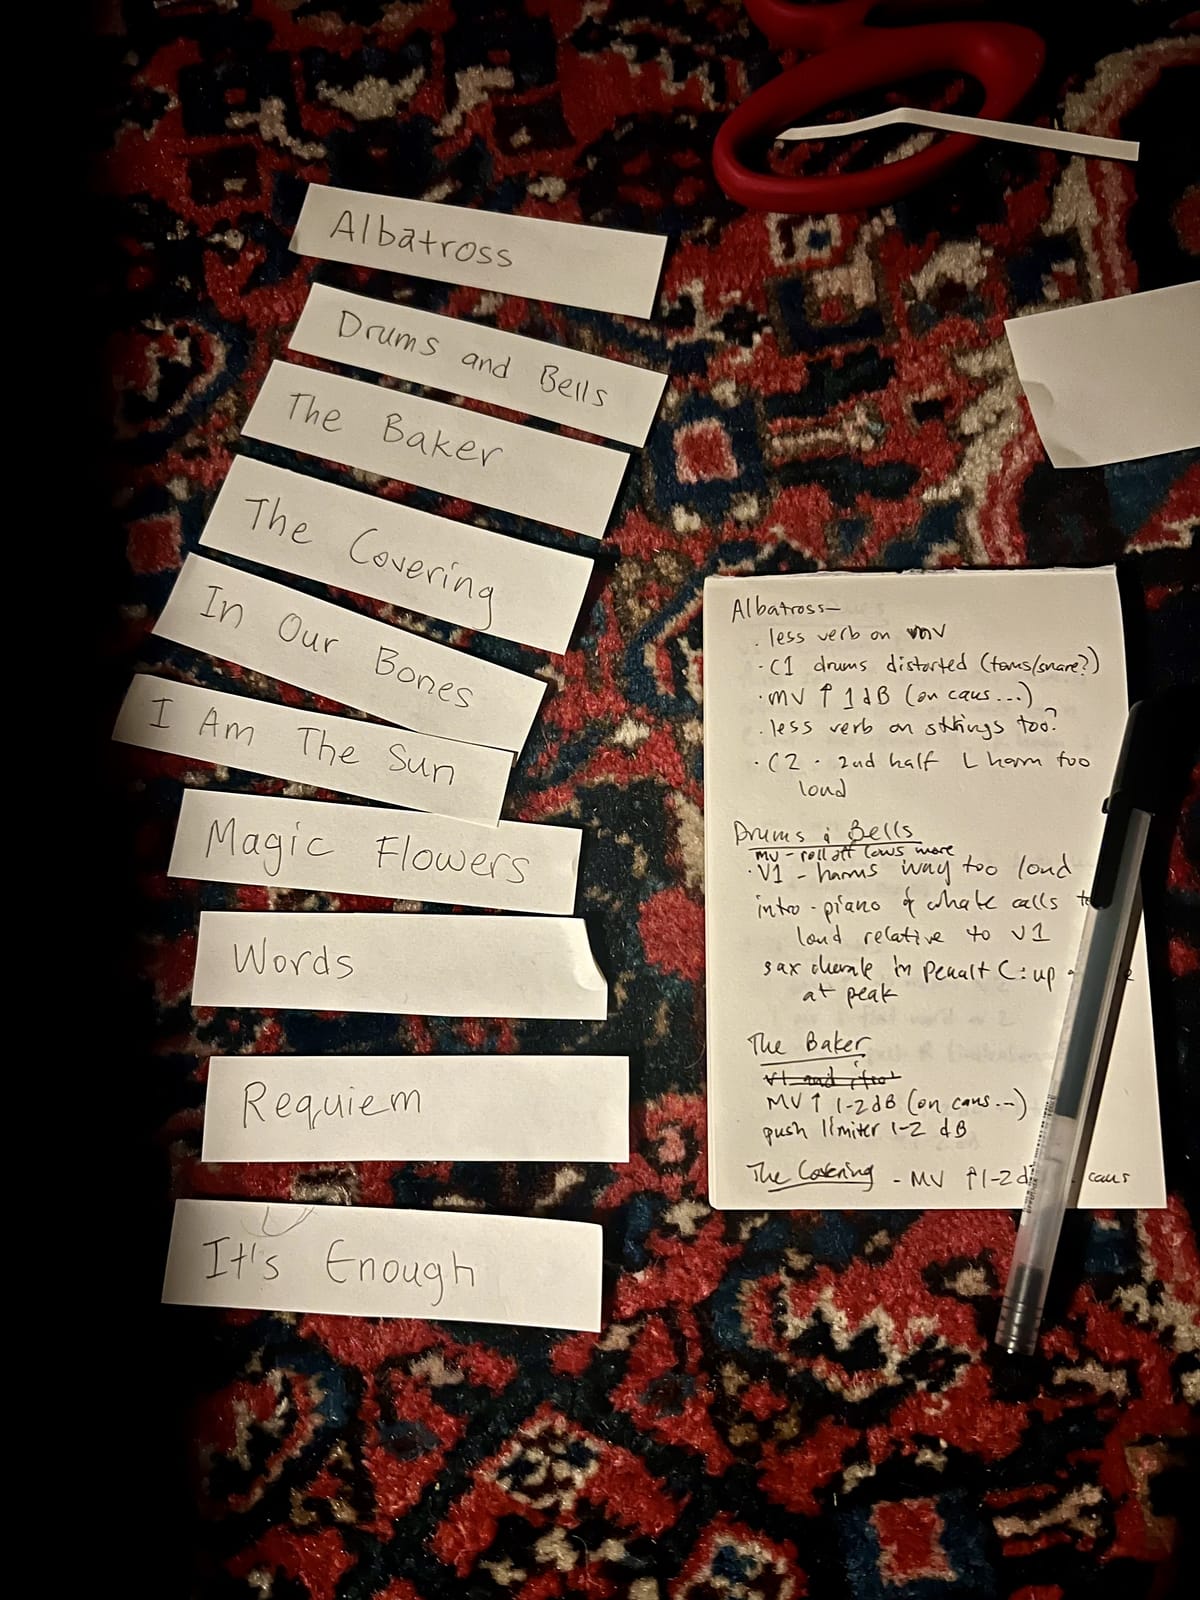 Albatross
Drums and Bells
The Baker
The Covering
In Our Bones
I Am The Sun
Magic Flowers
Words
Requiem
It's Enough
Albatross—
. less verb on MV
· C1 drums distorted (toms/snare?)
· MV ↑ 1 dB (on cans...)
. less verb on strings too?
· C2 - 2nd half L harm too
loud
Drums & Bells
MV - roll off lows more
· V1 - harms way too loud
intro - piano & whale calls
loud relative to V1
sax chorale in penult C: up
at peak
The Baker
V1 and
MV ↑ 1-2 dB (on cans...)
push limiter 1-2 dB
The Covering - MV ↑ 1-2 cans